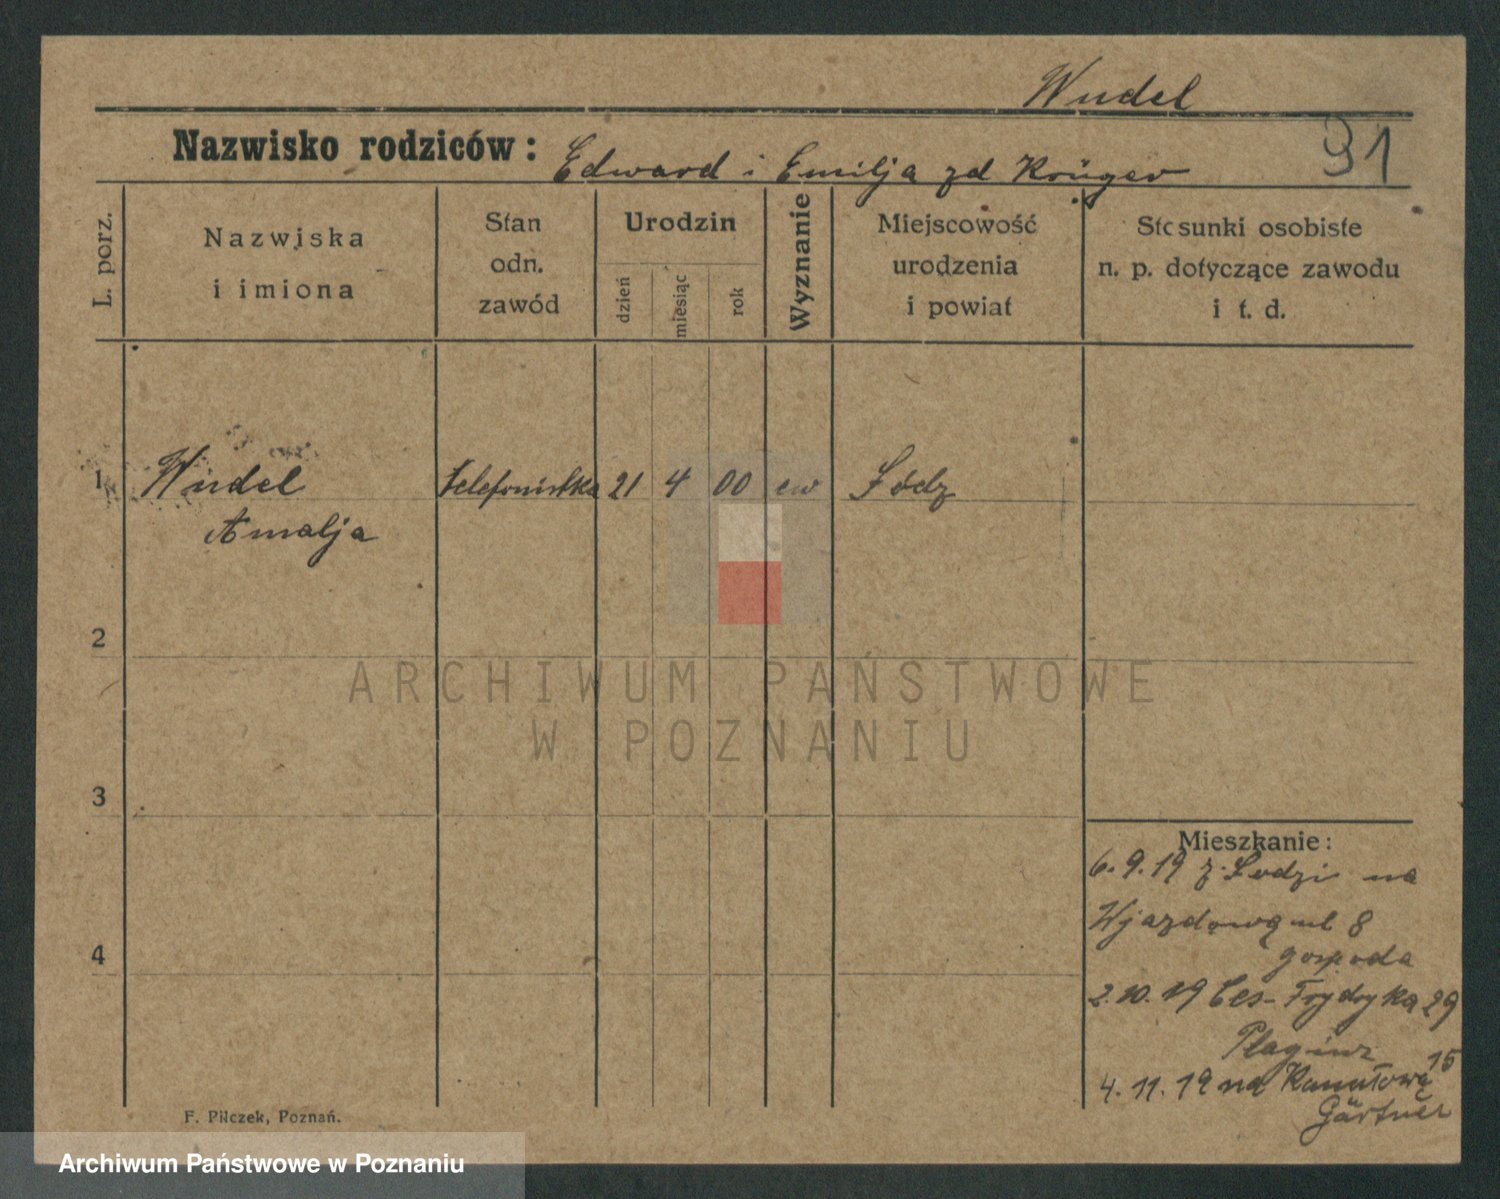 Wudel
Nazwisko rodziców: Edward i Emilja zd Krüger
91
L. porz.
Nazwiska
i imiona
Stan
odn.
zawód
Urodzin
dzień
miesiąc
rok
Wyznanie
Miejscowość
urodzenia
i powiat
Stosunki osobiste
n. p. dotyczące zawodu
i t. d.
1 Wudel Telefonistka 21 4 00 ew Łódz
Amalja
2
ARCHIWUM PAŃSTWOWE
W POZNANIU
3
Mieszkanie:
6.9.19 z Łodzi na
Wjazdową ul 8
gospoda
4
2.10.19 Ces-Frydryka 29
15
4.11.19 na Kanałową
Gärtner
F. Pilczek, Poznań.
Archiwum Państwowe w Poznaniu